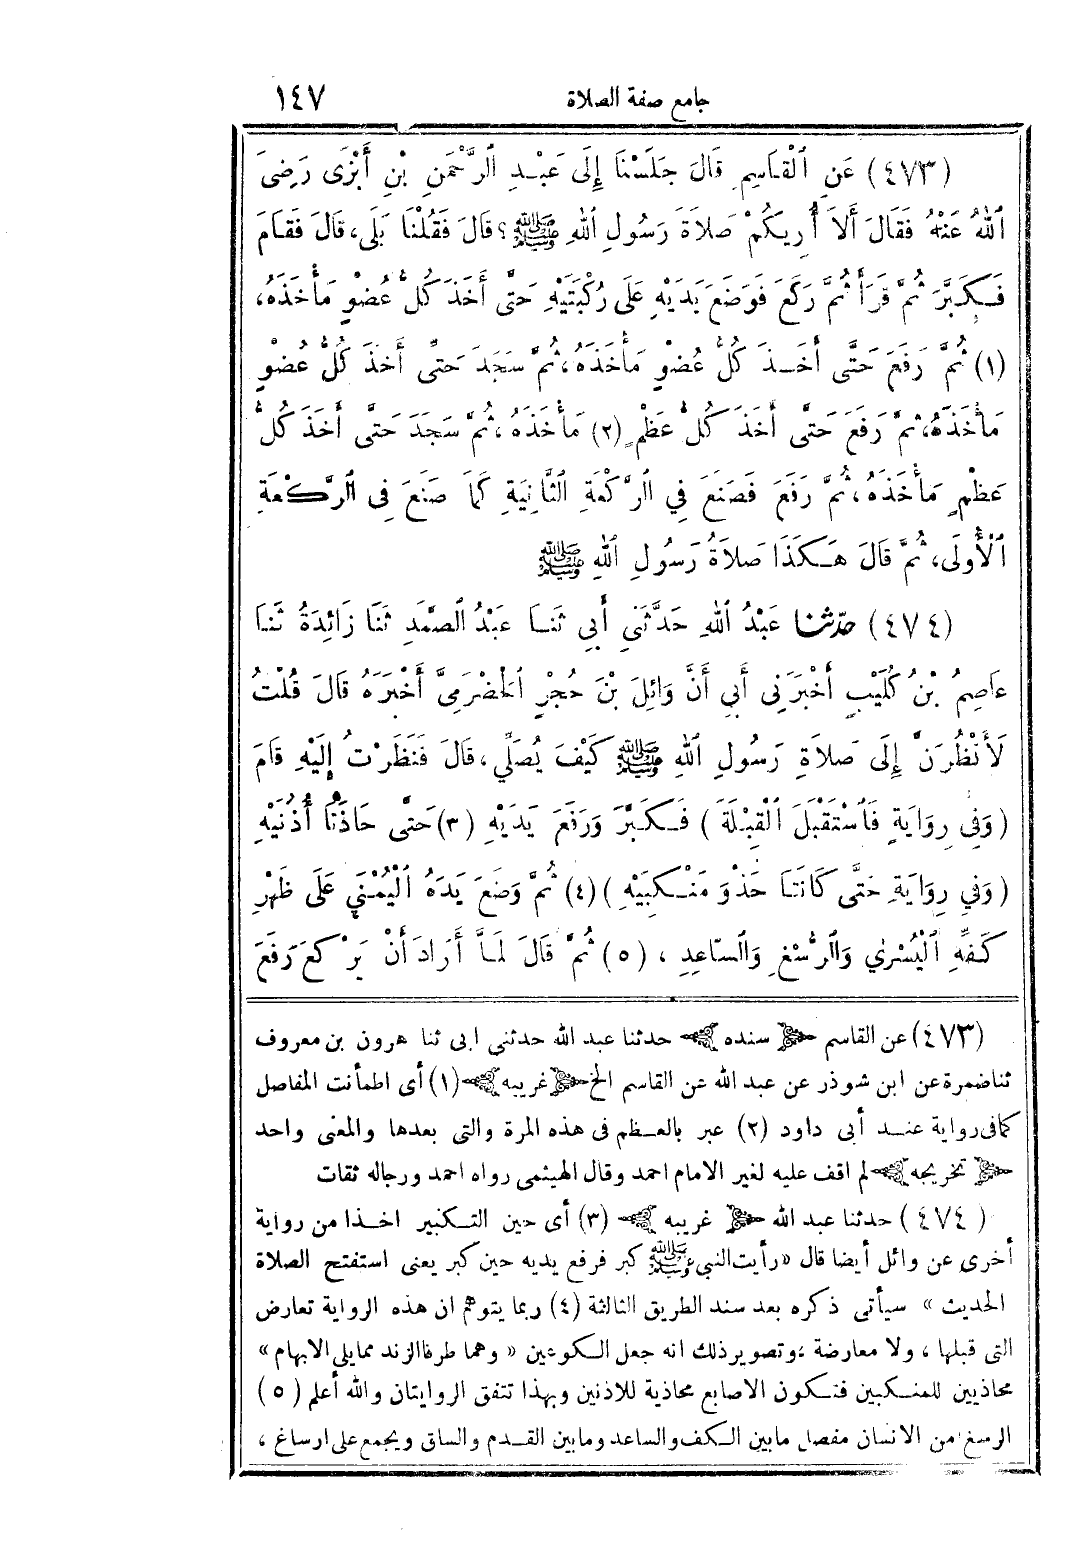 جامع صفة الصلاة ١٤٧
(٤٧٣) عَنِ ٱلْقَاسِمِ قَالَ جَلَسْنَا إِلَى عَبْدِ ٱلرَّحْمَنِ بْنِ أَبْزَى رَضِيَ
ٱللهُ عَنْهُ فَقَالَ أَلاَ أُرِيكُمْ صَلاَةَ رَسُولِ ٱللهِ ﷺ؟ قَالَ فَقُلْنَا بَلَى، قَالَ فَقَامَ
فَكَبَّرَ ثُمَّ قَرَأَ ثُمَّ رَكَعَ فَوَضَعَ يَدَيْهِ عَلَى رُكْبَتَيْهِ حَتَّى أَخَذَ كُلُّ عُضْوٍ مَأْخَذَهُ،
(١) ثُمَّ رَفَعَ حَتَّى أَخَذَ كُلُّ عُضْوٍ مَأْخَذَهُ، ثُمَّ سَجَدَ حَتَّى أَخَذَ كُلُّ عُضْوٍ
مَأْخَذَهُ، ثُمَّ رَفَعَ حَتَّى أَخَذَ كُلُّ عَظْمٍ (٢) مَأْخَذَهُ، ثُمَّ سَجَدَ حَتَّى أَخَذَ كُلُّ
عَظْمٍ مَأْخَذَهُ، ثُمَّ رَفَعَ فَصَنَعَ فِي ٱلرَّكْعَةِ ٱلثَّانِيَةِ كَمَا صَنَعَ فِي ٱلرَّكْعَةِ
ٱلْأُولَى، ثُمَّ قَالَ هَكَذَا صَلاَةُ رَسُولِ ٱللهِ ﷺ
(٤٧٤) حدّثنا عَبْدُ ٱللهِ حَدَّثَنِي أَبِي ثَنَا عَبْدُ ٱلصَّمَدِ ثَنَا زَائِدَةُ ثَنَا
عَاصِمُ بْنُ كُلَيْبٍ أَخْبَرَنِي أَبِي أَنَّ وَائِلَ بْنَ حُجْرٍ ٱلْحَضْرَمِيَّ أَخْبَرَهُ قَالَ قُلْتُ
لَأَنْظُرَنَّ إِلَى صَلاَةِ رَسُولِ ٱللهِ ﷺ كَيْفَ يُصَلِّي، قَالَ فَنَظَرْتُ إِلَيْهِ قَامَ
(وَفِي رِوَايَةٍ فَٱسْتَقْبَلَ ٱلْقِبْلَةَ) فَكَبَّرَ وَرَفَعَ يَدَيْهِ (٣) حَتَّى حَاذَتَا أُذُنَيْهِ
(وَفِي رِوَايَةٍ حَتَّى كَانَتَا حَذْوَ مَنْكِبَيْهِ) (٤) ثُمَّ وَضَعَ يَدَهُ ٱلْيُمْنَى عَلَى ظَهْرِ
كَفِّهِ ٱلْيُسْرَى وَٱلرُّسْغِ وَٱلسَّاعِدِ، (٥) ثُمَّ قَالَ لَمَّا أَرَادَ أَنْ يَرْكَعَ رَفَعَ
(٤٧٣) عن القاسم ﴿سنده﴾ حدثنا عبد الله حدثنى ابى ثنا هرون بن معروف
ثنا ضمرة عن ابن شوذر عن عبد الله عن القاسم الخ ﴿غريبه﴾ (١) أى اطمأنت المفاصل
كما فى رواية عند أبى داود (٢) عبر بالعظم فى هذه المرة والتى بعدها والمعنى واحد
﴿تخريجه﴾ لم اقف عليه لغير الامام احمد وقال الهيثمى رواه احمد ورجاله ثقات
(٤٧٤) حدثنا عبد الله ﴿غريبه﴾ (٣) أى حين التكبير اخذا من رواية
أخرى عن وائل أيضا قال «رأيت النبى ﷺ كبر فرفع يديه حين كبر يعنى استفتح الصلاة
الحديث» سيأتى ذكره بعد سند الطريق الثالثة (٤) ربما يتوهم ان هذه الرواية تعارض
التى قبلها، ولا معارضة، وتصوير ذلك انه جعل الكوعين «وهما طرفا الزند مما يلى الابهام»
محاذيين للمنكبين فتكون الاصابع محاذية للاذنين وبهذا تتفق الروايتان والله أعلم (٥)
الرسغ من الانسان مفصل ما بين الكف والساعد وما بين القدم والساق ويجمع على ارساغ،